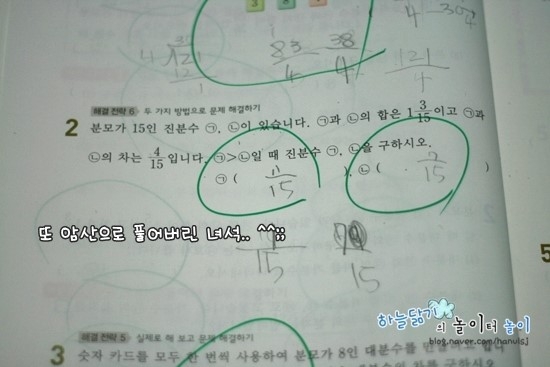 3 8
4 304
30
4√121
12
1
83 38
4 4
121
4
해결 전략 6 두 가지 방법으로 문제 해결하기
2 분모가 15인 진분수 ㉠, ㉡이 있습니다. ㉠과 ㉡의 합은 1 3/15이고 ㉠과
㉡의 차는 4/15입니다. ㉠>㉡일 때 진분수 ㉠, ㉡을 구하시오.
㉠ ( 11/15 ), ㉡ ( 7/15 )
또 암산으로 풀어버린 녀석.. ^^;;
15 15
하늘닮기의 놀이터 놀이
blog.naver.com/hanulsj
해결 전략 5 실제로 해 보고 문제 해결하기
3 숫자 카드를 모두 한 번씩 사용하여 분모가 8인 대분수를
5